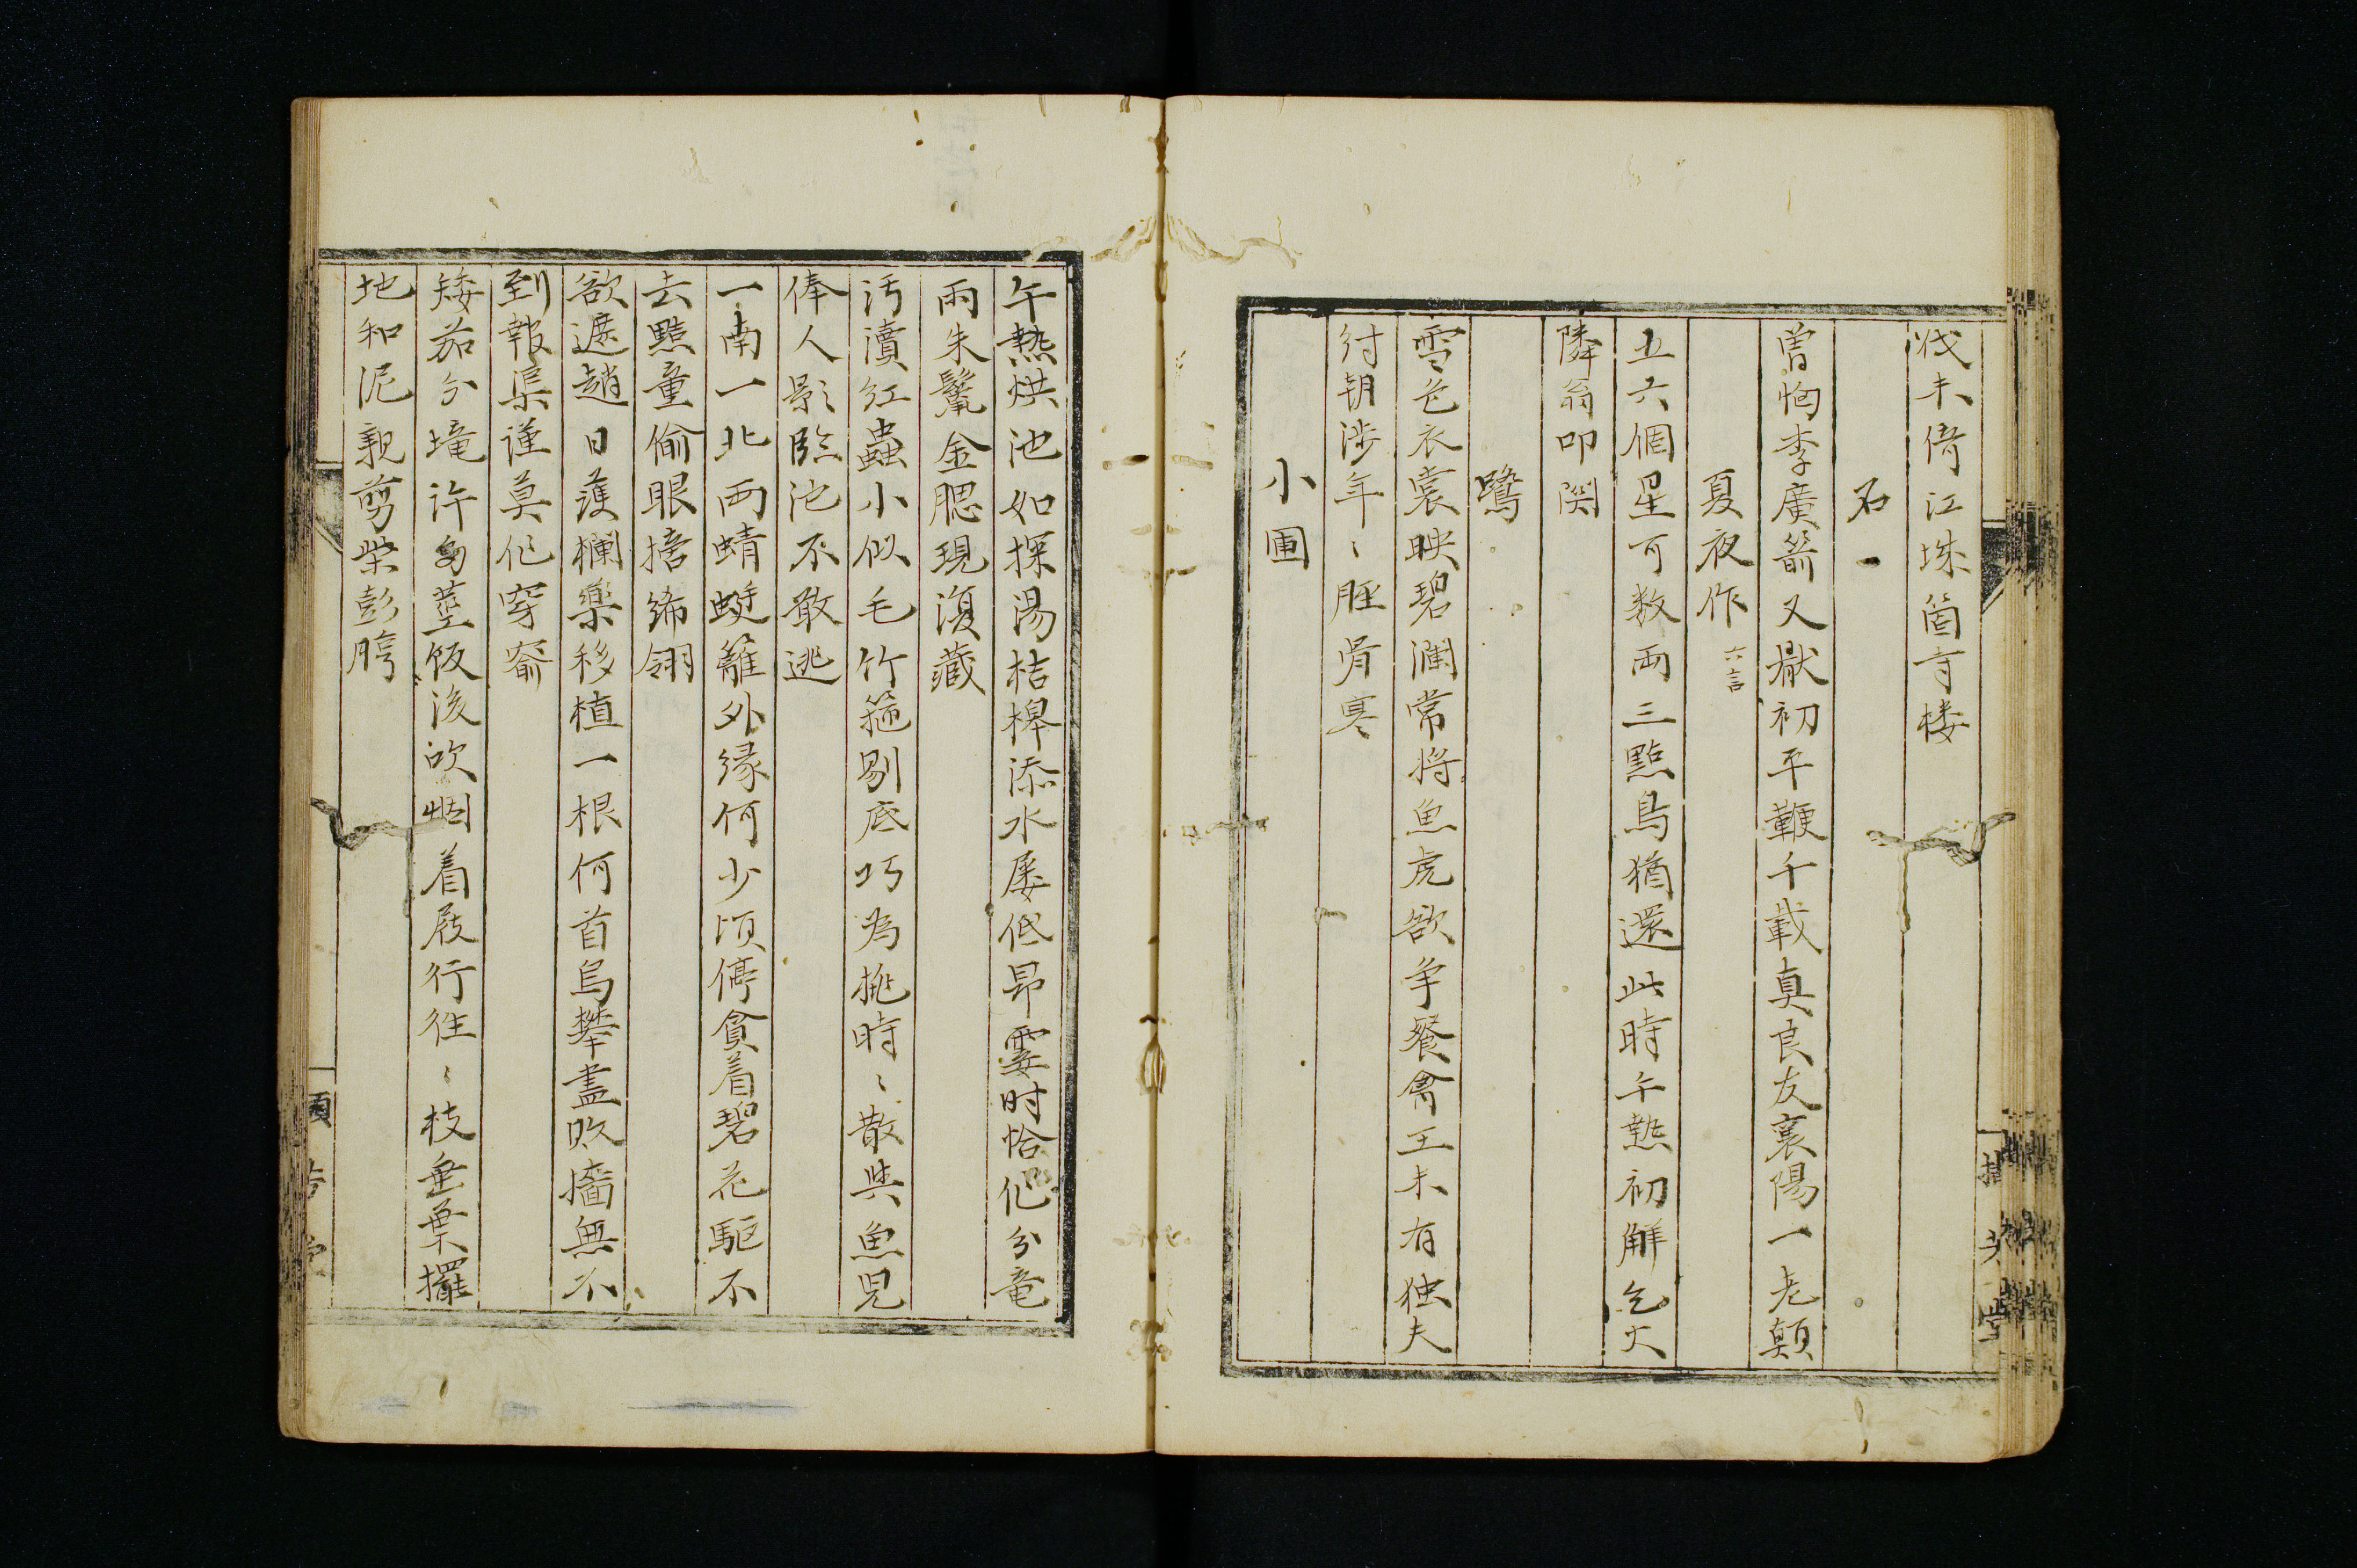 伐未倚江珠箇寺楼
石
曽怐李廣箭又擨初平鞭千載真良友襄陽一老顛
夏夜作 六言
五六個星可数両三點鳥猶還此時午熱初解乞火
隣翁叩関
鷺
雪色衣裳映碧瀾常将魚虎欲争餐禽王未有独夫
紂朝渉年〻脛骨寒
小圃
午熱烘池如探湯桔槹添水屡低昂霎时恰化分竜
雨朱鬣金腮現復藏
汚瀆紅蟲小似毛竹箍剔底巧為挑時〻散与魚児
俸人影臨池不敢逃
一南一北両蜻蜓籬外縁何少頃停貪着碧花駆不
去黠童偷眼搭絺翎
欲遮趙日護欄藥移植一根何首烏攀盡敗墻無不
到報渠謹莫化穿窬
矮茄分境許多莖飯後吹烟着屐行往〻枝垂葉擺
地和泥親剪紫彭脝